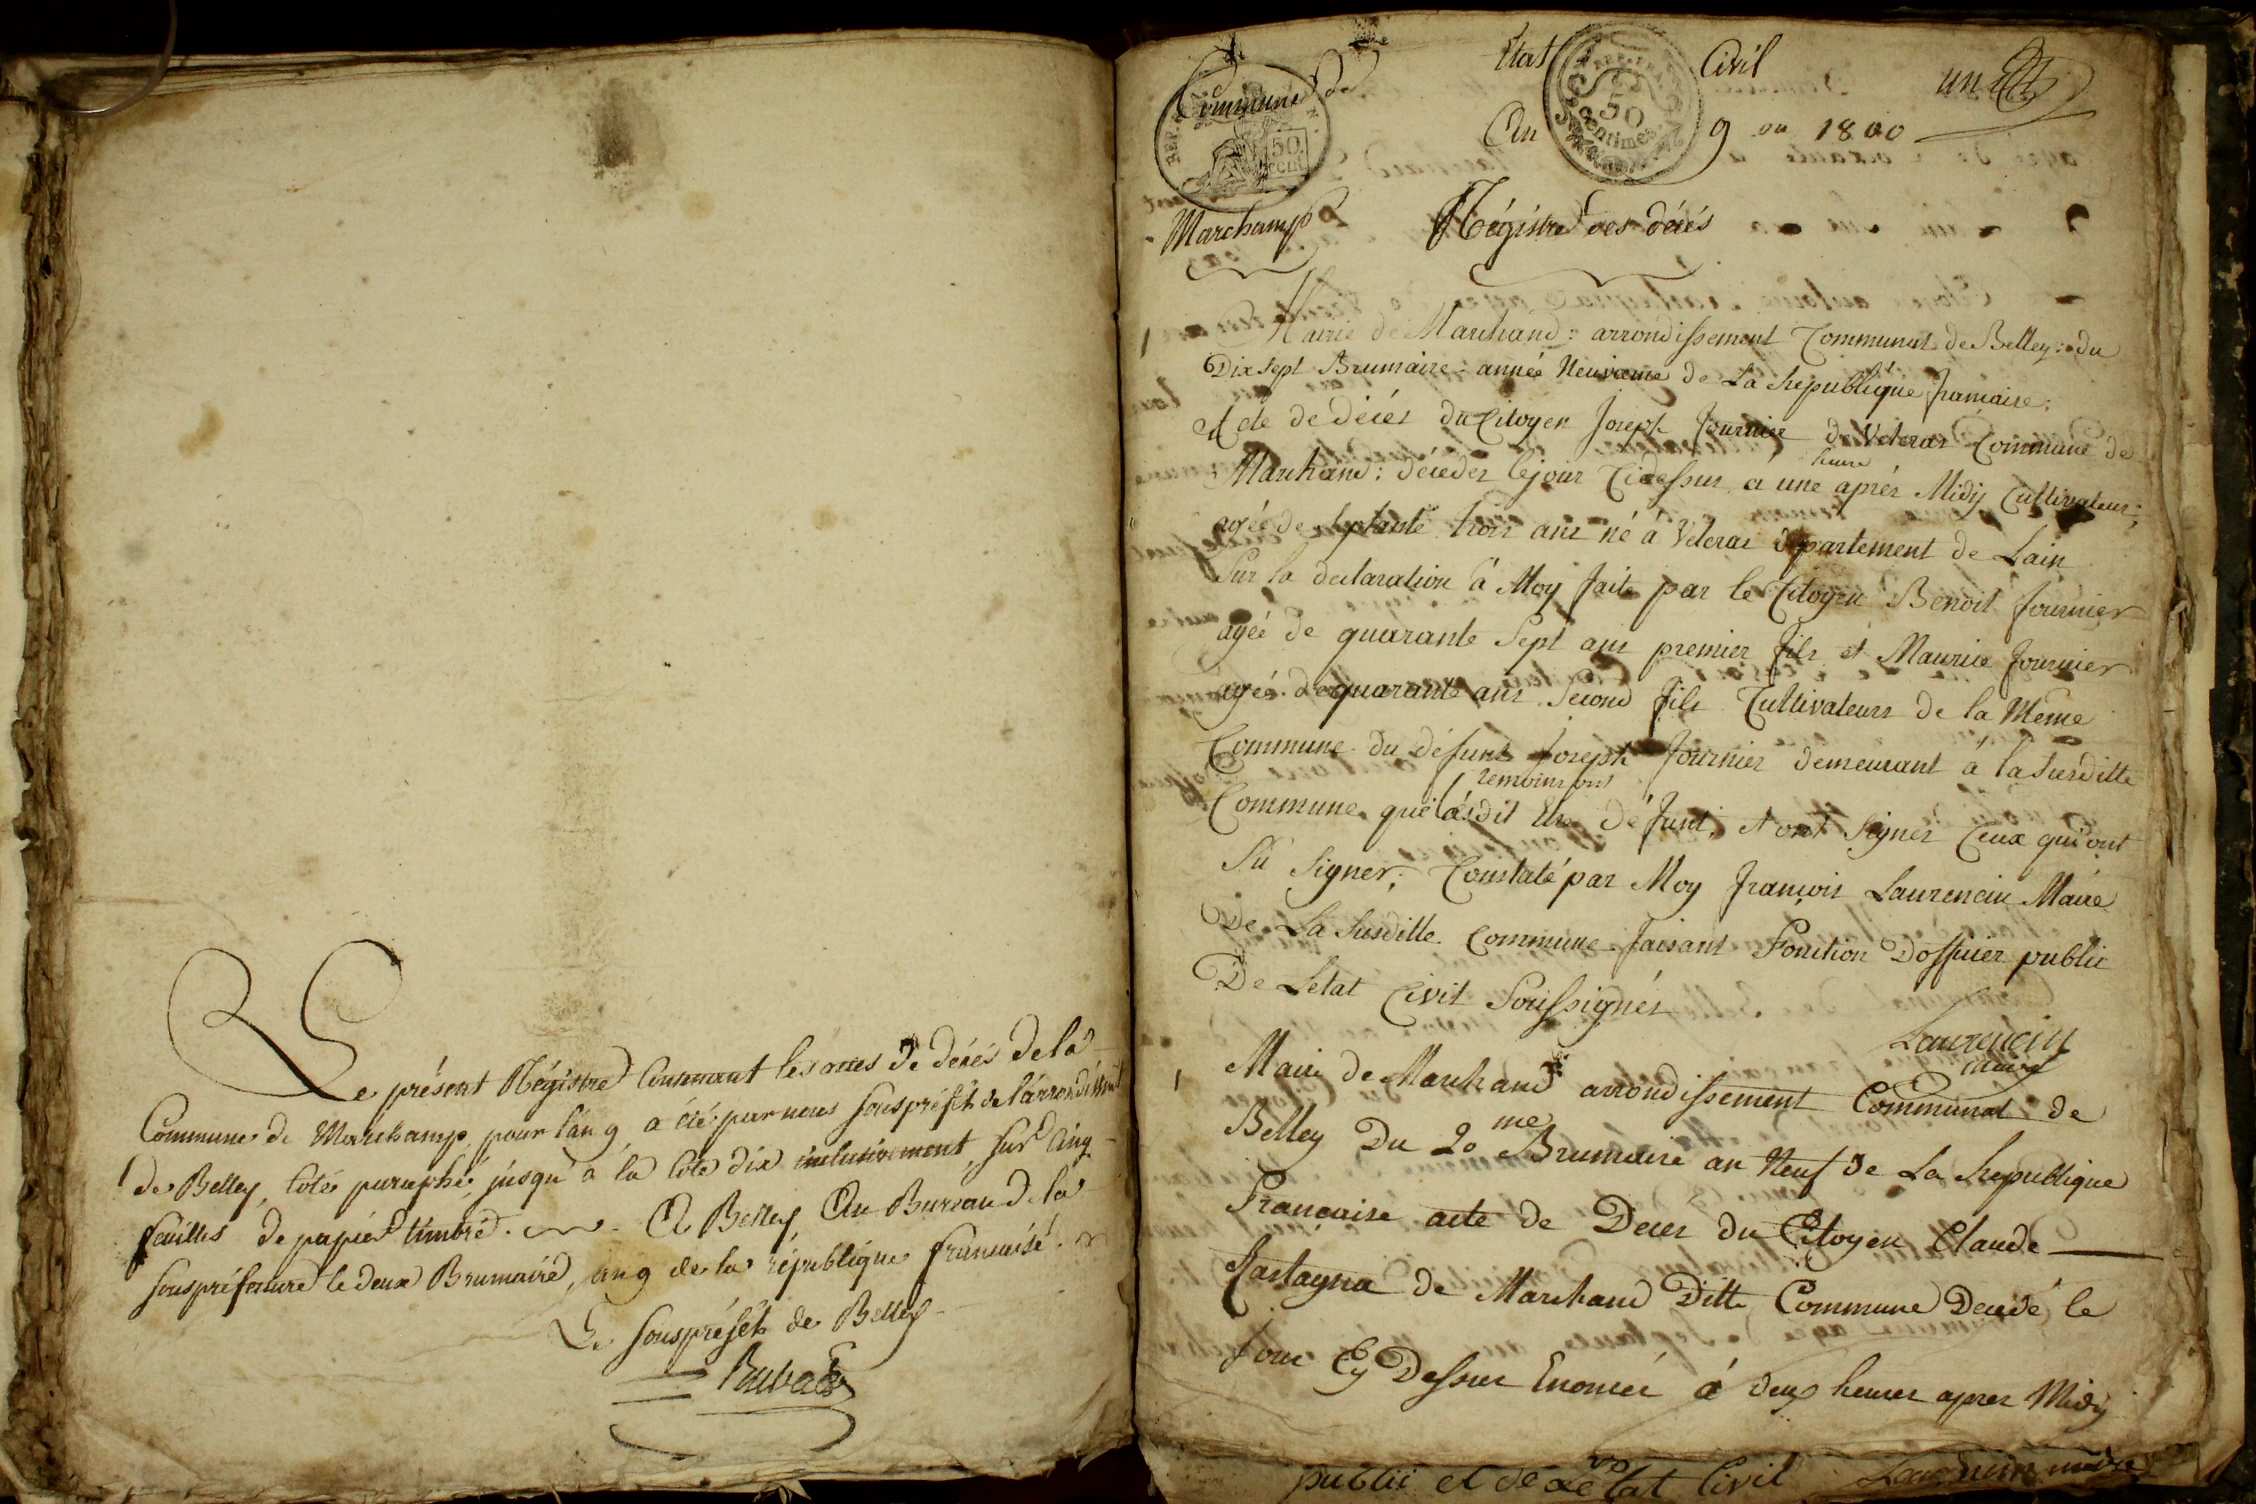 Le présent Régistre Contenant les actes de décés de la
Commune de Marchamp, pour l'an 9, a été par nous souspréfét de l'arrondissmt
de Belley, coté paraphé, jusqu'à la cote dix inclusivement, sur cinq
feuilles de papier timbré. A Belley Au Bureau de la
souspréfecture le deux Brumaire, an 9 de la république française.
Le souspréfét de Belley
Commune de
REP.
50
CEN.
Marchamp
Etat Civil
REP. FRA.
50
centimes
An 9 ou 1800
un
Régistre des décés
Mairie de Marchand: arrondissement Communal de Belley: du
Dix Sept Brumaire: année Neuvieme de La Republique francaise;
Acte de décés du Citoyen Joseph fournier de Veleras Commune de
Marchand: déceder le jour Cidessus a une heure aprés Midy Cultivateur;
agée de Septante trois ans né á Veleras département de Lain
Sur la declaration á Moy faite par le Citoyen Benoit fournier
agée de quarante Sept ans premier fils et Maurice fournier
agée de quarante ans Second fils Cultivateurs de la Meme
Commune du défunt Joseph fournier demeurant á la Susditte
temoins ont
Commune qui dit Etre défunt, et ont Signer Ceux qui ont
Su Signer; Constaté par Moy francois Laurencin Maire
De La Susditte Commune faisant Fonction Dofficier public
De Letat Civil Soussignés
Laurencin
maire
Mairie de Marchand arrondissement Communal de
Belley Du 20me Brumaire an Neuf de La Republique
Francaise acte de Deces du Citoyen Claude
Castagna de Marchand Ditte Commune Decedé le
Jour Cy Dessus Enoncée á deux heures apres Midy
public et de Letat Civil Laurencin maire